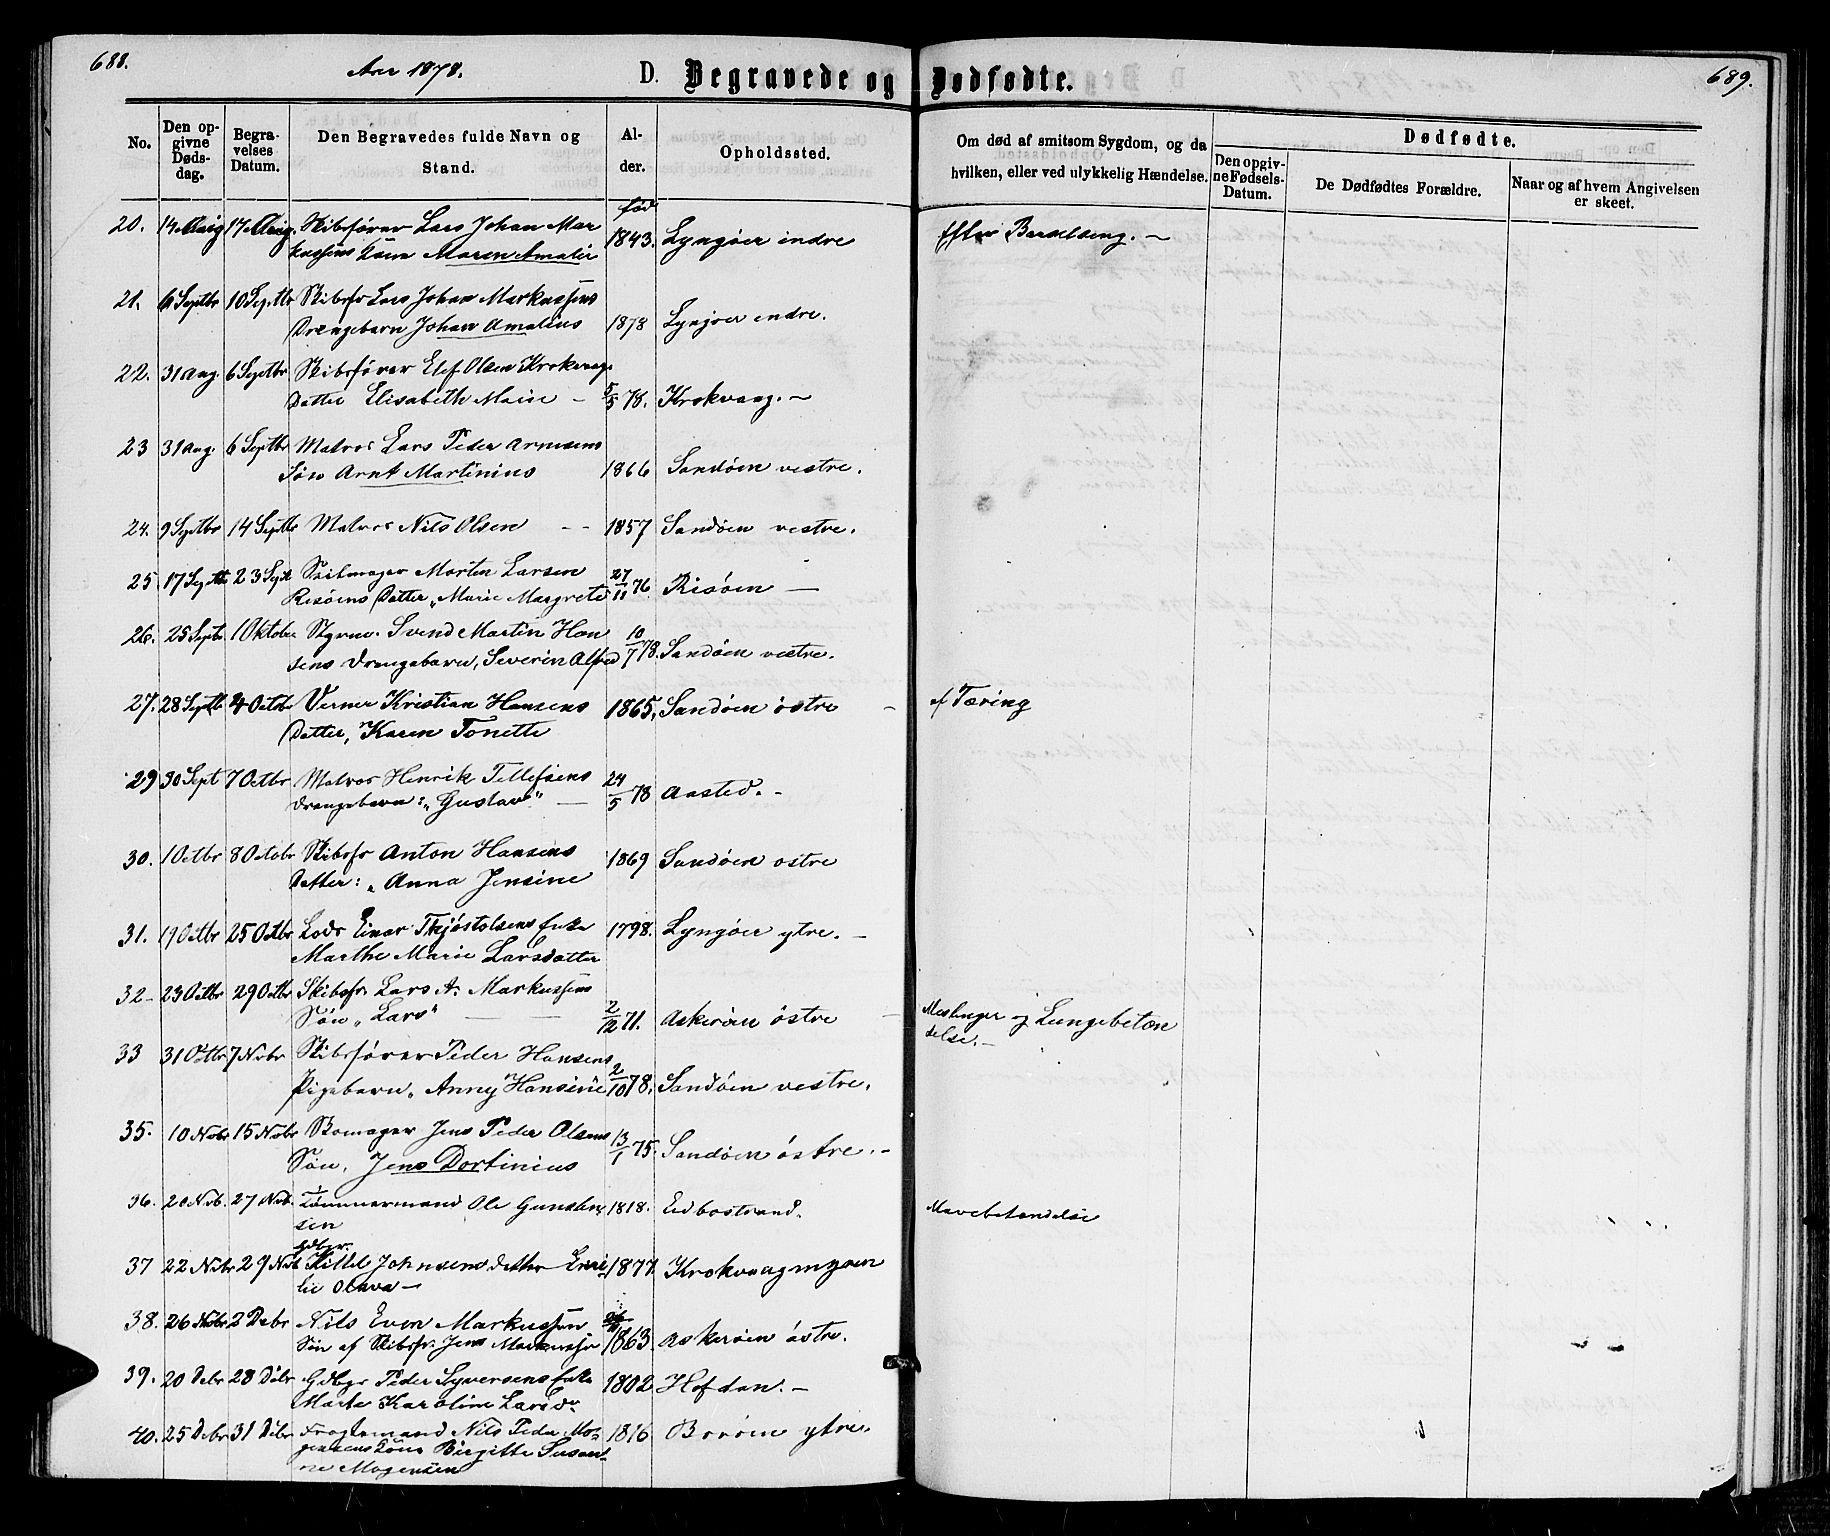 688.
Aar 1878.
D. Begravede og Dødfødte.
689.
No.
Den opgivne Dødsdag.
Begravelses Datum.
Den Begravedes fulde Navn og Stand.
Alder.
Opholdssted.
Om død af smitsom Sygdom, og da hvilken, eller ved ulykkelig Hændelse.
Dødfødte.
Den opgivne Fødsels-Datum.
De Dødfødtes Forældre.
Naar og af hvem Angivelsen er skeet.
20. 14 Aug 17 Aug. Skibsfører Lars Johan Mar fød 1843. Lyngøer indre Efter Barselseng. —
kussens Kone Maren Amalie
21. 6 Septbr 10 Septbr Skibsfr Lars Johan Markussens
Drengebarn Johan Amalius 1878 Lyngøer indre.
22. 31 Aug. 6 Septbr Skibsfører Elef Olsen Krokvaag
Datter Elisabeth Maise — 5/5 78. Krokvaag. —
23 31 Aug. 6 Septbr Matros Lars Peder Arnesens
Søn Arnt Martinius 1866 Sandøen vestre.
24. 9 Septbr 14 Septbr Matros Nils Olsen — — 1857 Sandøen vestre.
25 17 Septb 23 Sept Morten Larsen 27/11 76 Risøen —
Risøens Datter „Marie Margrete
26. 25 Septb 1 Oktober Styrm. Svend Martin Han 10/7 78. Sandøen vestre.
sens Drengebarn, Severin Alfred
27. 28 Septb 4 Octobr Verner Kristian Hansens 1865, Sandøen østre — af Tæring
Datter, Karen Tonette
29 30 Sept 7 Octbr Matros Henrik Tellefsens 24/5 78 Aasted. —
Drengebarn: „Gustav" —
30. 1 Octbr 8 Octobr Skibsfr Anton Hansens 1869 Sandøen østre
Datter: „Anna Jensine
31. 19 Octbr 25 Octbr Lods Einar Thjøstolsens Enke 1798. Lyngøer ytre. —
Marthe Marie Larsdatter
32 — 23 Octbr 29 Octbr Skibsfr. Lars A. Markussens
Søn „Lars" — 2/12 71. Askerøen østre — Meslinger og Lungebetæn
delse. —
33 31 Octbr 7 Novbr Skibsfører Peder Hansens
Pigebarn „Anny Hansine 2/10 78. Sandøen vestre.
35. 10 Novbr 15 Novbr Bomager Jens Peder Olsens 13/1 75. Sandøen østre. —
Søn, Jens Dortinius
36. 20 Novb. 27 Novb. Tømmermand Ole Gundersen 1818. Eidbostrand. Mavebetændelse
37 22 Novbr 29 Novb Gdbgr. Kittel Johnsens datter Emi 1877. Krokvaagmyren
lie Olava —
38. 26 Novbr 2 Debr Nils Even Markussen 1863. Askerøen østre.
Søn af Skibsfr. Jens Markussen
39. 20 Debr 28 Debr Gdbgr Peder Syversens Enke 1802 Hofdan. —
Marte Karoline Larsdr
40. 25 Debr 31 Debr Nils Peder Mo 1816 Borøen ytre.
gensens Kone Birgitte Susan
ne Mogensen